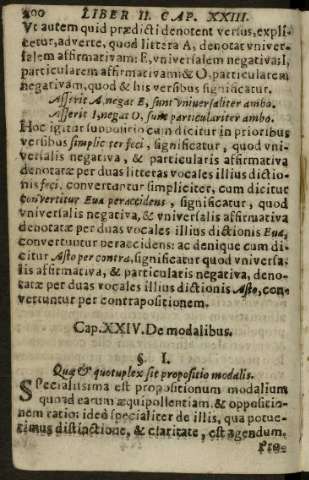 200 LIBER II. CAP. XXIII.
Vt autem quid prædicti denotent versus, expli-
cetur, adverte, quod littera A, denotat vniver-
salem affirmativam: E, vniversalem negativa: I,
particularem affirmativam: & O. particularem
negativam, quod & his versibus significatur.
Asserit A. negat E, sunt vniversaliter ambo.
Asserit I, negat O, sunt particulariter ambo.
Hoc igitur supposito cum dicitur in prioribus
versibus simplic ter feci, significatur, quod vni-
versalis negativa, & particularis affirmativa
denotatæ per duas litteras vocales illius dictio-
nis feci. convertuntur simpliciter, cum dicitur
convertitur Eua peraccidens, significatur, quod
vniversalis negativa, & vniversalis affirmativa
denotatæ per duas vocales illius dictionis Eua,
convertuntur peraccidens: ac denique cum di-
citur Asto per contra, significatur quod vniversa-
lis affirmativa, & particularis negativa, deno-
tatæ per duas vocales illius dictionis Asto, con-
vertuntur per contrapositionem.
Cap. XXIV. De modalibus.
§. I.
Quæ & quotuplex sit propositio modalis.
Specialissima est propositionum modalium
quoad earum æquipollentiam, & oppositio-
nem ratio: ideò specialiter de illis, qua potue-
rimus distinctione, & claritate, est agendum.